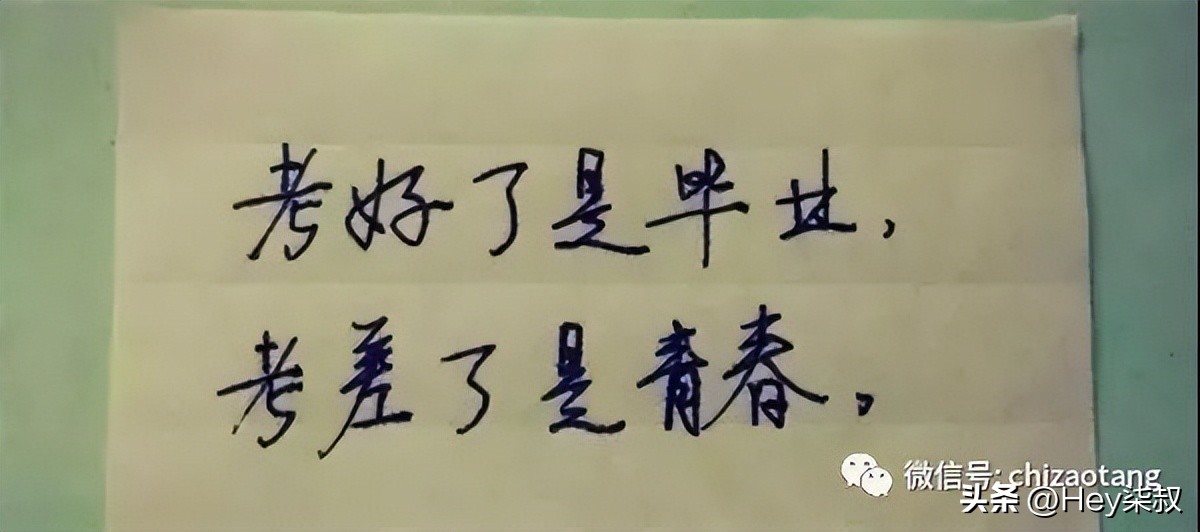 考好了是毕业,
考差了是青春。
微信号: chizaotang
头条 @Hey柒叔